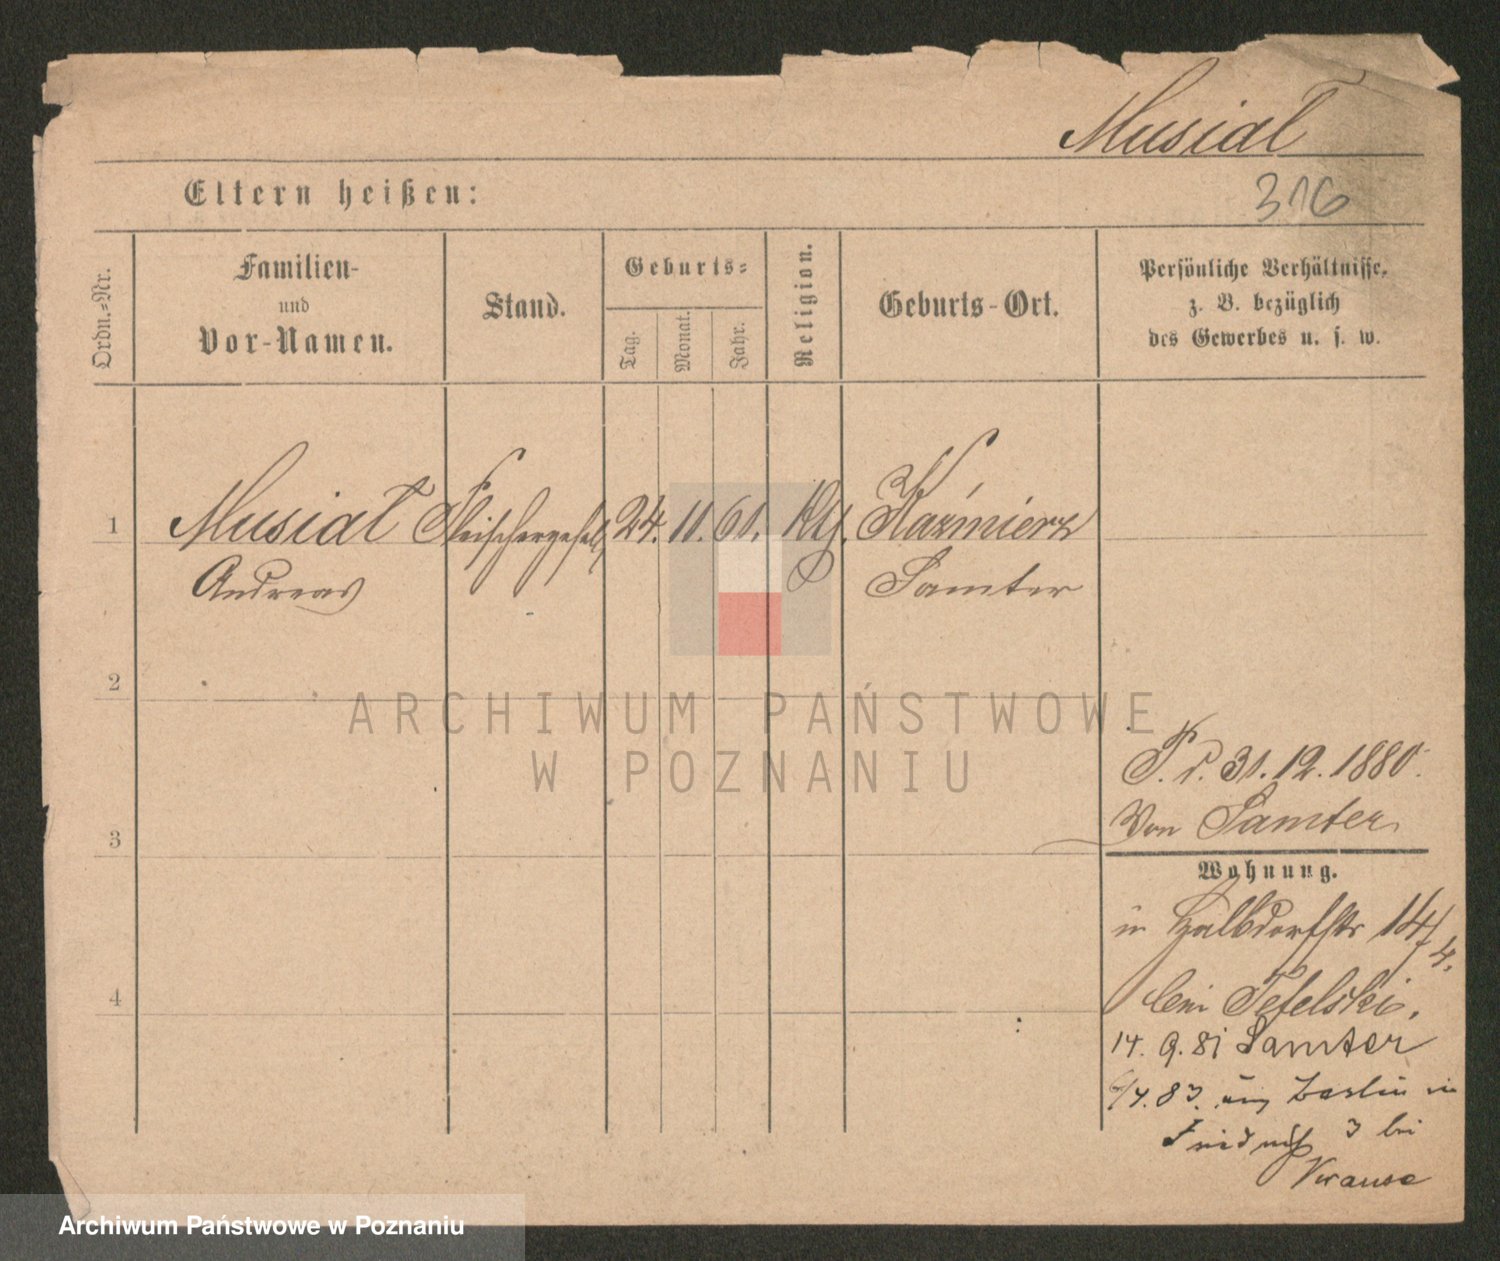 Musiał
316
Eltern heißen:
Ordn.-Nr.
Familien-
und
Vor-Namen.
Stand.
Geburts-
Tag.
Monat.
Jahr.
Religion.
Geburts-Ort.
Persönliche Verhältnisse,
z. B. bezüglich
des Gewerbes u. s. w.
1 Musiał Fleischergesell 24. 11. 61. Kth. Kaźmierz
Andreas Samter
2
ARCHIWUM PAŃSTWOWE
W POZNANIU
31.12.1880.
Von Samter
3
Wohnung.
in Halbdorfstr 14/4.
4
bei Tefelski.
14. 9. 81 Samter
/4.83. Berlin in
3 bei
Krause
Archiwum Państwowe w Poznaniu